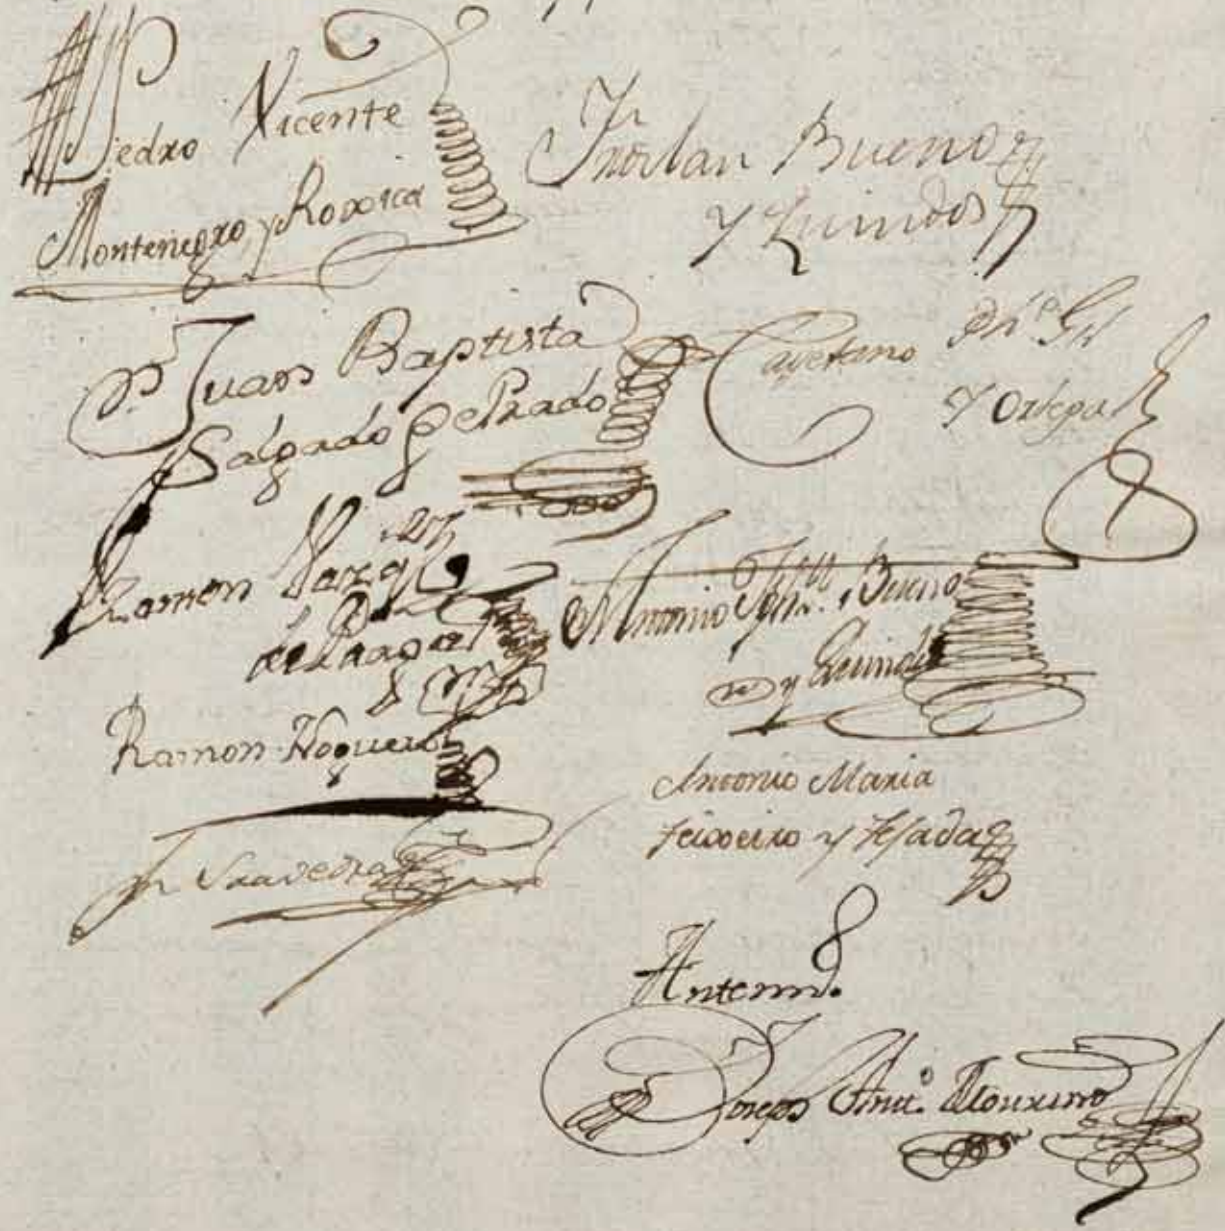 Pedro Vicente
Montenegro, y Rovoria
Froilan Bueno
y Quindós
Juan Baptista
Salgado de Prado
Cayetano Ph.e Gil
y Ortega
Ramon Vazq.
de Praga
Antonio Bueno
y Quindos
Ramon Nogueira
Antonio Maria
Teixeiro y Tejada
Saavedra
Antemi.
Joseph Ant.o Mourino